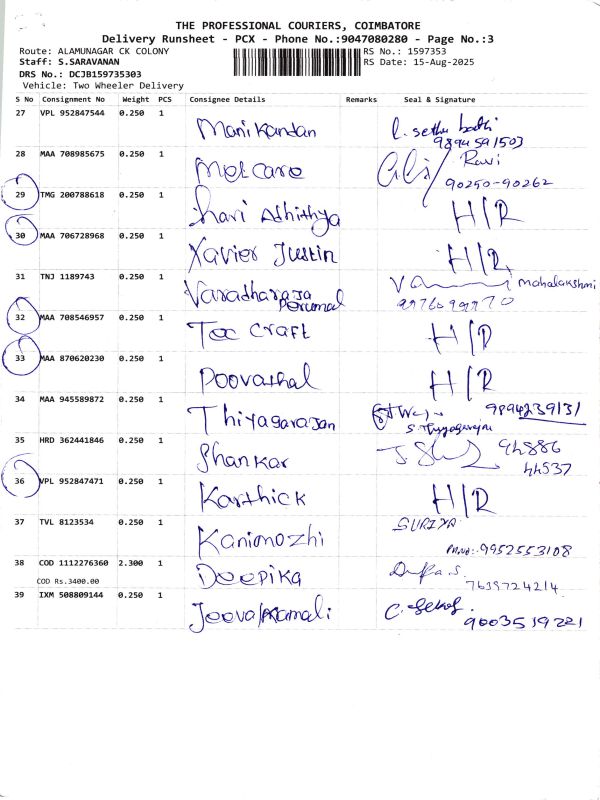 THE PROFESSIONAL COURIERS, COIMBATORE
Delivery Runsheet - PCX - Phone No.:9047080280 - Page No.:3
Route: ALAMUNAGAR CK COLONY RS No.: 1597353
Staff: S.SARAVANAN RS Date: 15-Aug-2025
DRS No.: DCJB159735303
Vehicle: Two Wheeler Delivery
S No Consignment No Weight PCS Consignee Details Remarks Seal & Signature
27 VPL 952847544 0.250 1 Manikandan
9894591503
28 MAA 708985675 0.250 1 Metcare Ravi
90250-90262
29 TMG 200788618 0.250 1 hari Athithya H/R
30 MAA 706728968 0.250 1 Xavier Justin H/R
31 TNJ 1189743 0.250 1 Varadharaja Perumal mahalakshmi
32 MAA 708546957 0.250 1 Tec craft H/R
33 MAA 870620230 0.250 1 Poovathal H/R
34 MAA 945589872 0.250 1 Thiyagarajan 9894239131
S. Thyagarajan
35 HRD 362441846 0.250 1 Shankar 94886
44537
36 VPL 952847471 0.250 1 Karthick H/R
37 TVL 8123534 0.250 1 Kanimozhi SURIYA
9952553108
38 COD 1112276360 2.300 1 Deepika
COD Rs.3400.00 7639724214
39 IXM 508809144 0.250 1 C. Sekar
9003519221